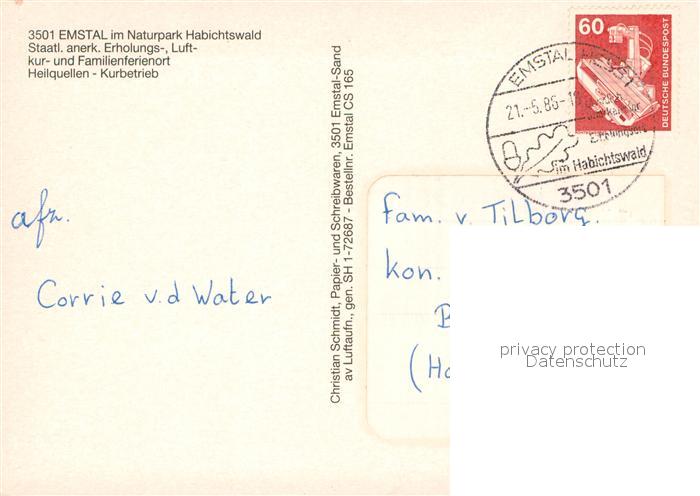 3501 EMSTAL im Naturpark Habichtswald
Staatl. anerk. Erholungs-, Luft-
kur- und Familienferienort
Heilquellen - Kurbetrieb
afz.
Corrie v.d Water
Christian Schmidt, Papier- und Schreibwaren, 3501 Emstal-Sand
av Luftaufn., gen. SH 1-72687 - Bestellnr. Emstal CS 165
60
DEUTSCHE BUNDESPOST
EMSTAL
21.-5.86-18
im Habichtswald
3501
Fam. v. Tilborg.
kon.
B
(Ho
privacy protection
Datenschutz